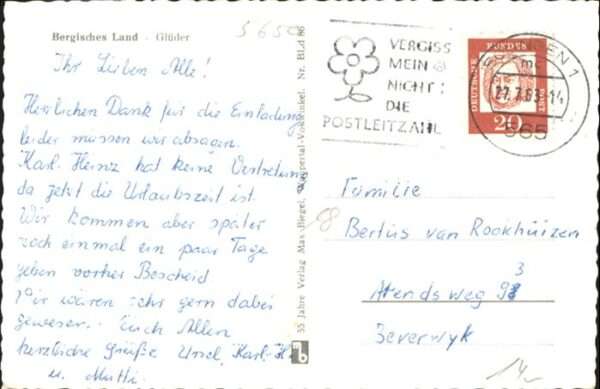 Bergisches Land - Glüder
5650
Ihr Lieben Alle!
Herzlichen Dank für die Einladung
leider müssen wir absagen.
Karl-Heinz hat keine Vertretung
da jetzt die Urlaubszeit ist.
Wir kommen aber später
noch einmal ein paar Tage
geben vorher Bescheid
Wir wären sehr gern dabei
gewesen. Euch Allen
herzliche Grüße Ursel, Karl-H
u. Mutti.
55 Jahre Verlag Max Biegel, Wuppertal-Vohwinkel. Nr. BLd 86
VERGISS
MEIN
NICHT:
DIE
POSTLEITZAHL
DEUTSCHE BUNDESPOST
20
27.7.63-14
565
Familie
Bertus van Rookhuizen
Arendsweg 93
Beverwyk